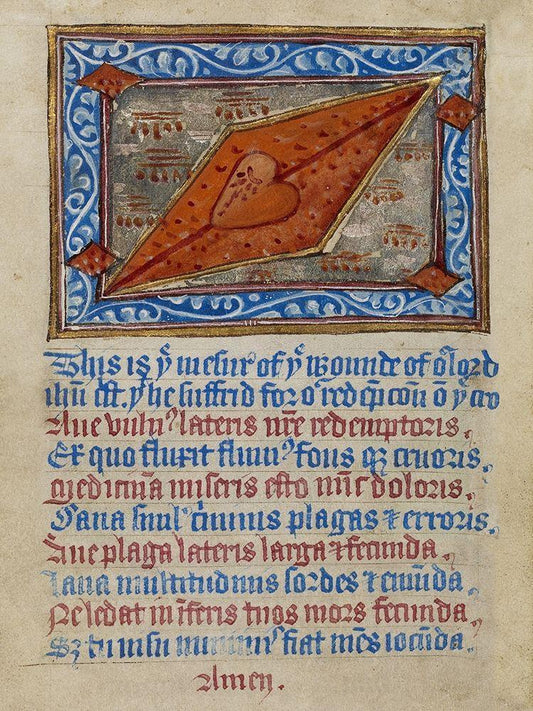 This is yͤ mesurͤ of yͤ wounde of oͬ lord
ihu̅ . yͭ he suffrid for oͬ rede̅pcou̅ o̅ yͤ cro
Aue vulnꝰ lateris nr̅e redemptoris.
Ex quo fluxit fluuiꝰ fons qꝫ cruoris.
Medicina̅ miseris esto nu̅c doloris.
Sana simul plagas ⁊ erroris.
Aue plaga lateris larga ⁊ fecunda.
laua multitudinis sordes ⁊ emu̅da.
Ne ledat i̅feris tuos mors secunda.
Sꝫ fiat me̅s iocu̅da
Amen.